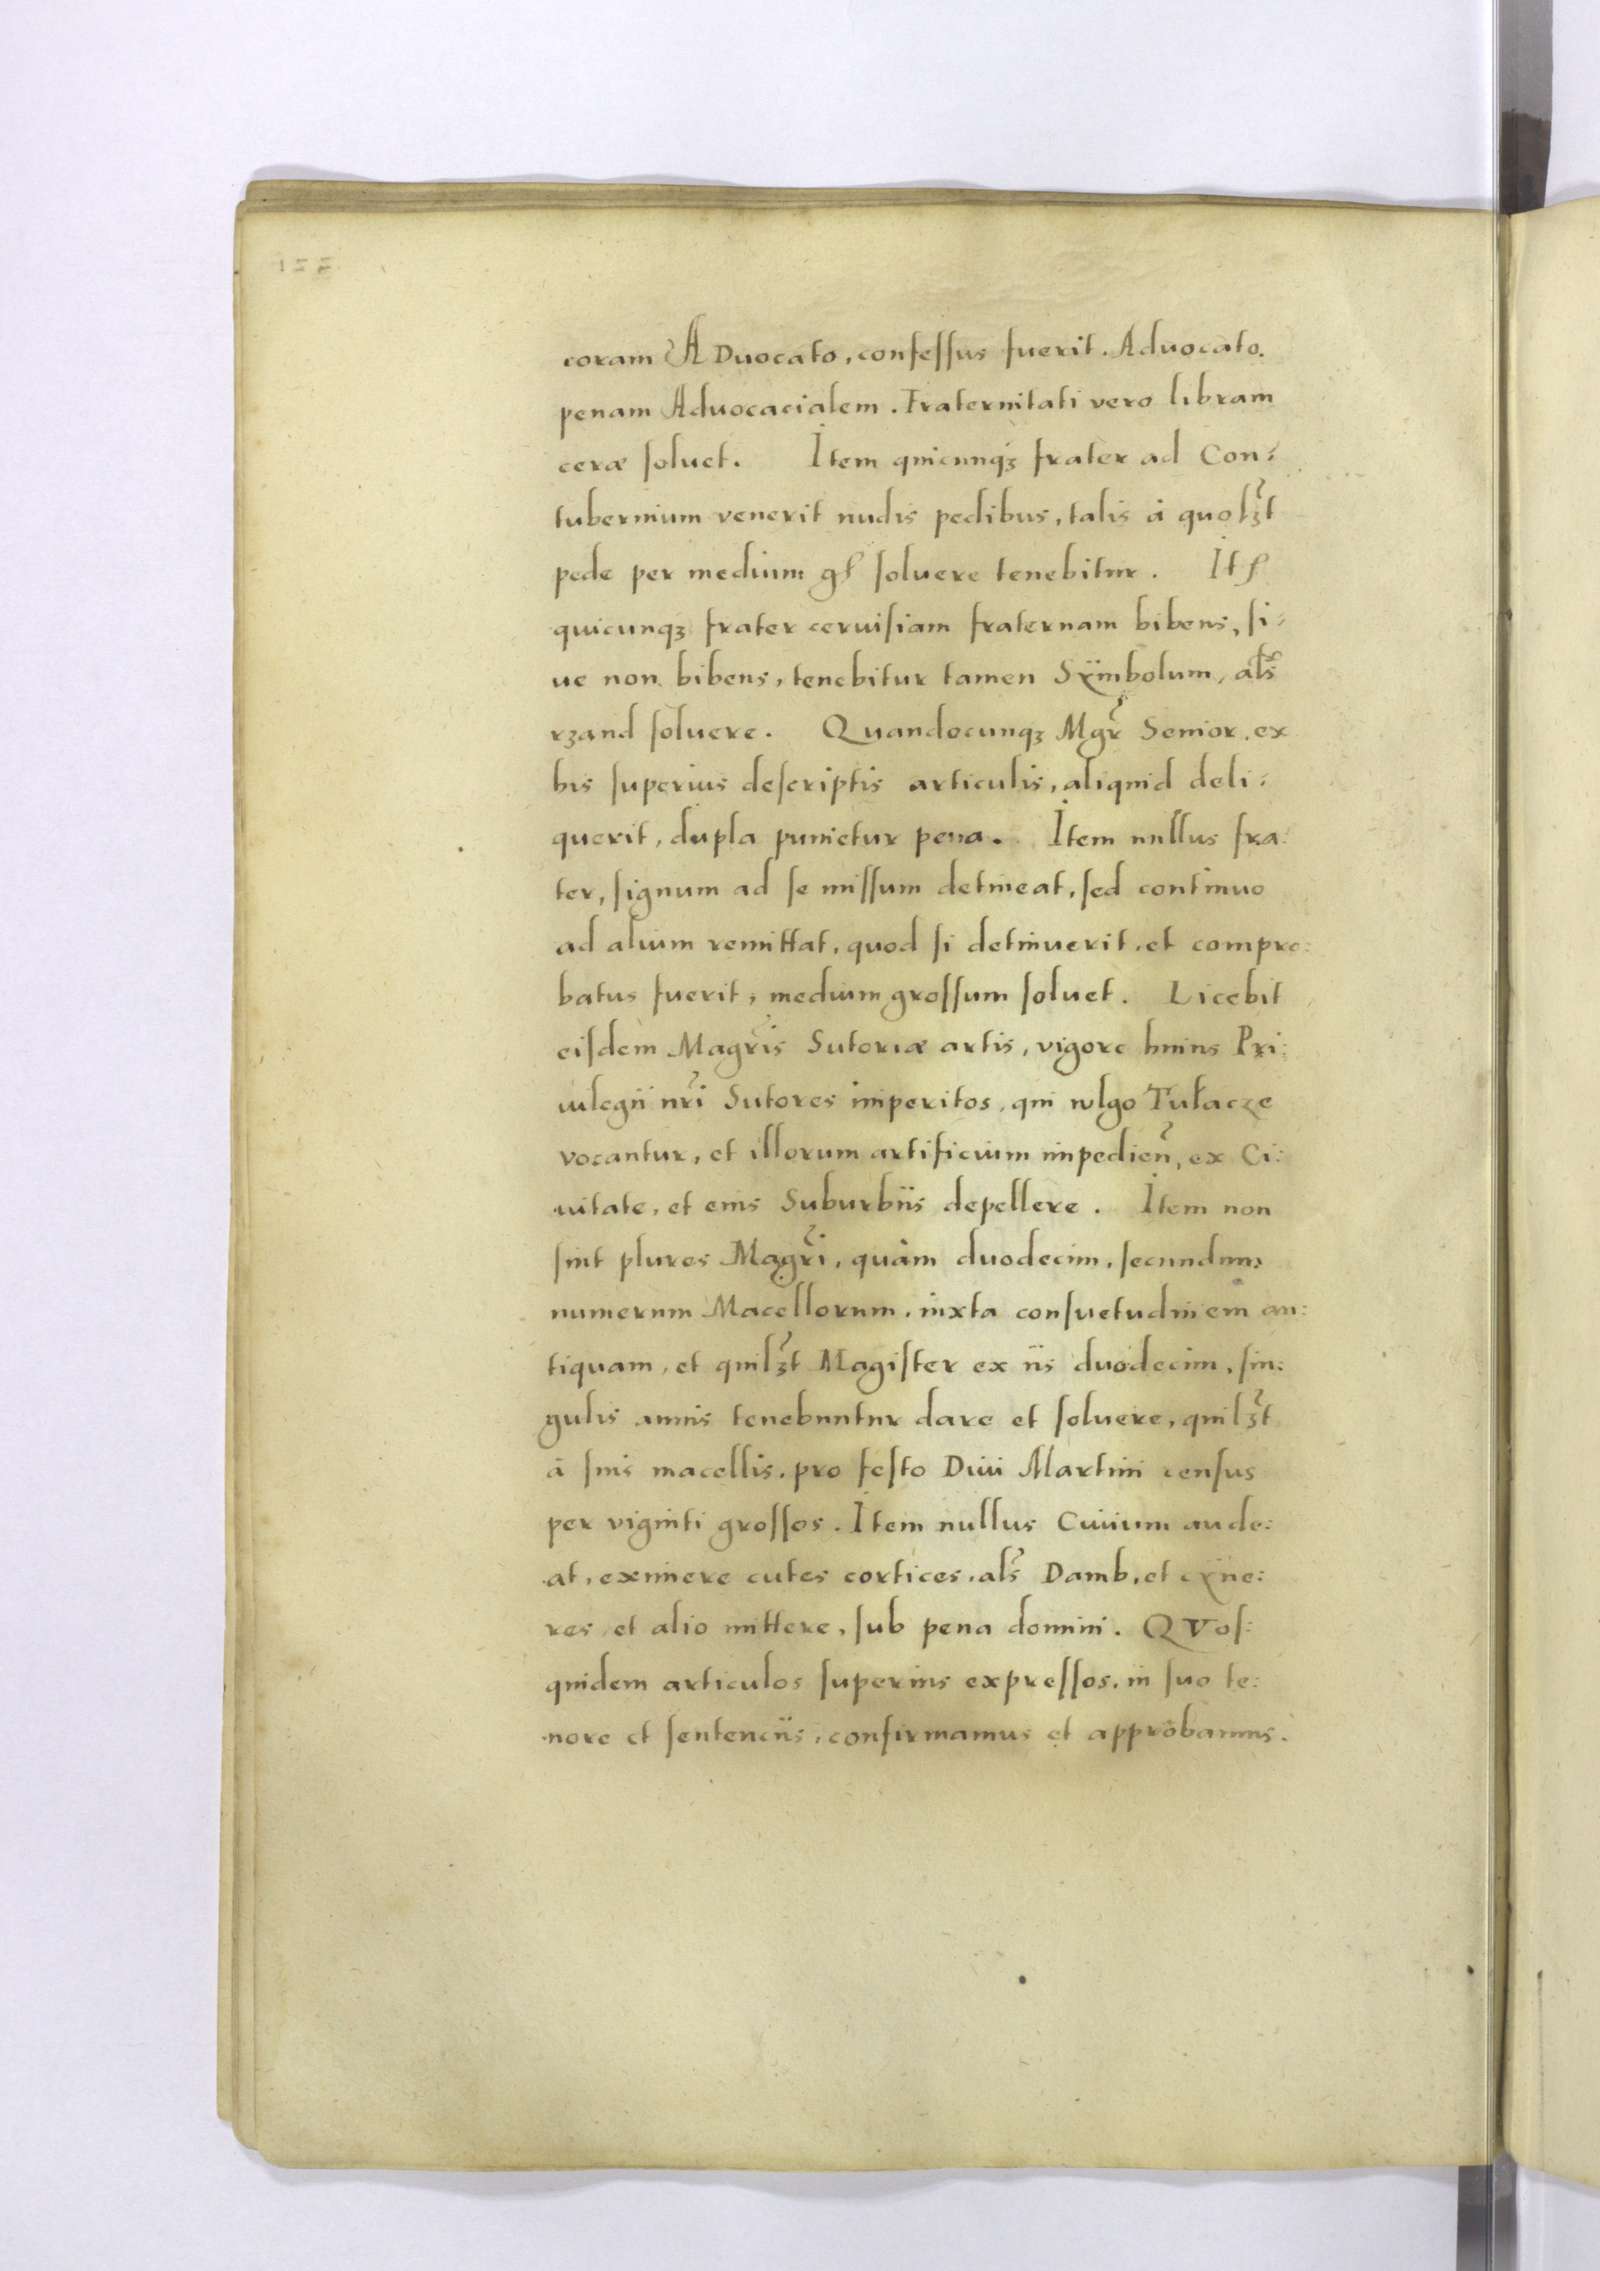 coram ADuocato, confeſſus fuerit. Aduocato.
penam Aduocacialem. Fraternitati vero libram
ceræ ſoluet. Item quicunqꝫ frater ad Con:
tubernium venerit nudis pedibus, talis á quolꝫt
pede per medium gſ ſoluere tenebitur. Itſ
quicunqꝫ frater ceruiſiam fraternam bibens, ſi:
ue non bibens, tenebitur tamen Sÿmbolum, als
rzand ſoluere. Quandocunqꝫ Mgr Senior, ex
his ſuperius deſcriptis articulis, aliquid deli:
querit, dupla punietur pena. Item nullus fra:
ter, ſignum ad ſe miſſum detineat, ſed continuo
ad alium remittat, quod ſi detinuerit, et compro:
batus fuerit, medium groſſum ſoluet. Licebit
eiſdem Magris Sutoriæ artis, vigore huius Pri:
uilegii nri Sutores imperitos, qui vulgo Tułacze
vocantur, et illorum artificium impedien, ex Ci:
uitate, et eius Suburbiis depellere. Item non
ſint plures Magri, quàm duodecim, ſecundum
numerum Macellorum, iuxta conſuetudinem an:
tiquam, et quilꝫt Magiſter ex iis duodecim, ſin:
gulis annis tenebuntur dare et ſoluere, quilꝫt
á ſuis macellis, pro feſto Diui Martini cenſus
per viginti groſſos. Item nullus Ciuium aude:
at, eximere cutes cortices, als Damb, et cÿne:
res, et alio mittere, ſub pena domini. QVoſ:
quidem articulos ſuperius expreſſos, in ſuo te:
nore et ſentenciis, confirmamus et approbamus.